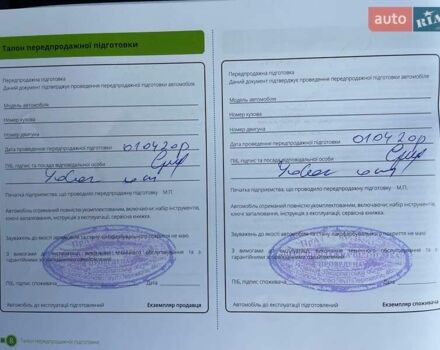 auto RIA
Талон передпродажної підготовки
Передпродажна підготовка
Даний документ підтверджує проведення передпродажної підготовки автомобіля
Модель автомобіля
Номер кузова
Номер двигуна
Дата проведення передпродажної підготовки 01 04 20р
ПІБ, підпис та посада відповідальної особи
Печатка підприємства, що проводило передпродажну підготовку М.П.
Автомобіль отриманий повністю укомплектованим, включаючи: набір інструментів,
ключі запалювання, інструкція з експлуатації, сервісна книжка.
Зауважень до якості автомобіля та стану лакофарбового покриття не маю.
З вимогами до експлуатації, технічного обслуговування та з
гарантійними зобов'язаннями ознайомлений
ПІБ, підпис споживача
Автомобіль до експлуатації підготовлений Екземпляр продавця
8 Талон передпродажної підготовки
Передпродажна підготовка
Даний документ підтверджує проведення передпродажної підготовки автомобіля
Модель автомобіля
Номер кузова
Номер двигуна
Дата проведення передпродажної підготовки 01 04 20р
ПІБ, підпис та посада відповідальної особи
Печатка підприємства, що проводило передпродажну підготовку М.П.
Автомобіль отриманий повністю укомплектованим, включаючи: набір інструментів,
ключі запалювання, інструкція з експлуатації, сервісна книжка.
Зауважень до якості автомобіля та стану лакофарбового покриття не маю.
З вимогами до експлуатації, технічного обслуговування та з
гарантійними зобов'язаннями ознайомлений
ПІБ, підпис споживача
Автомобіль до експлуатації підготовлений Екземпляр споживача